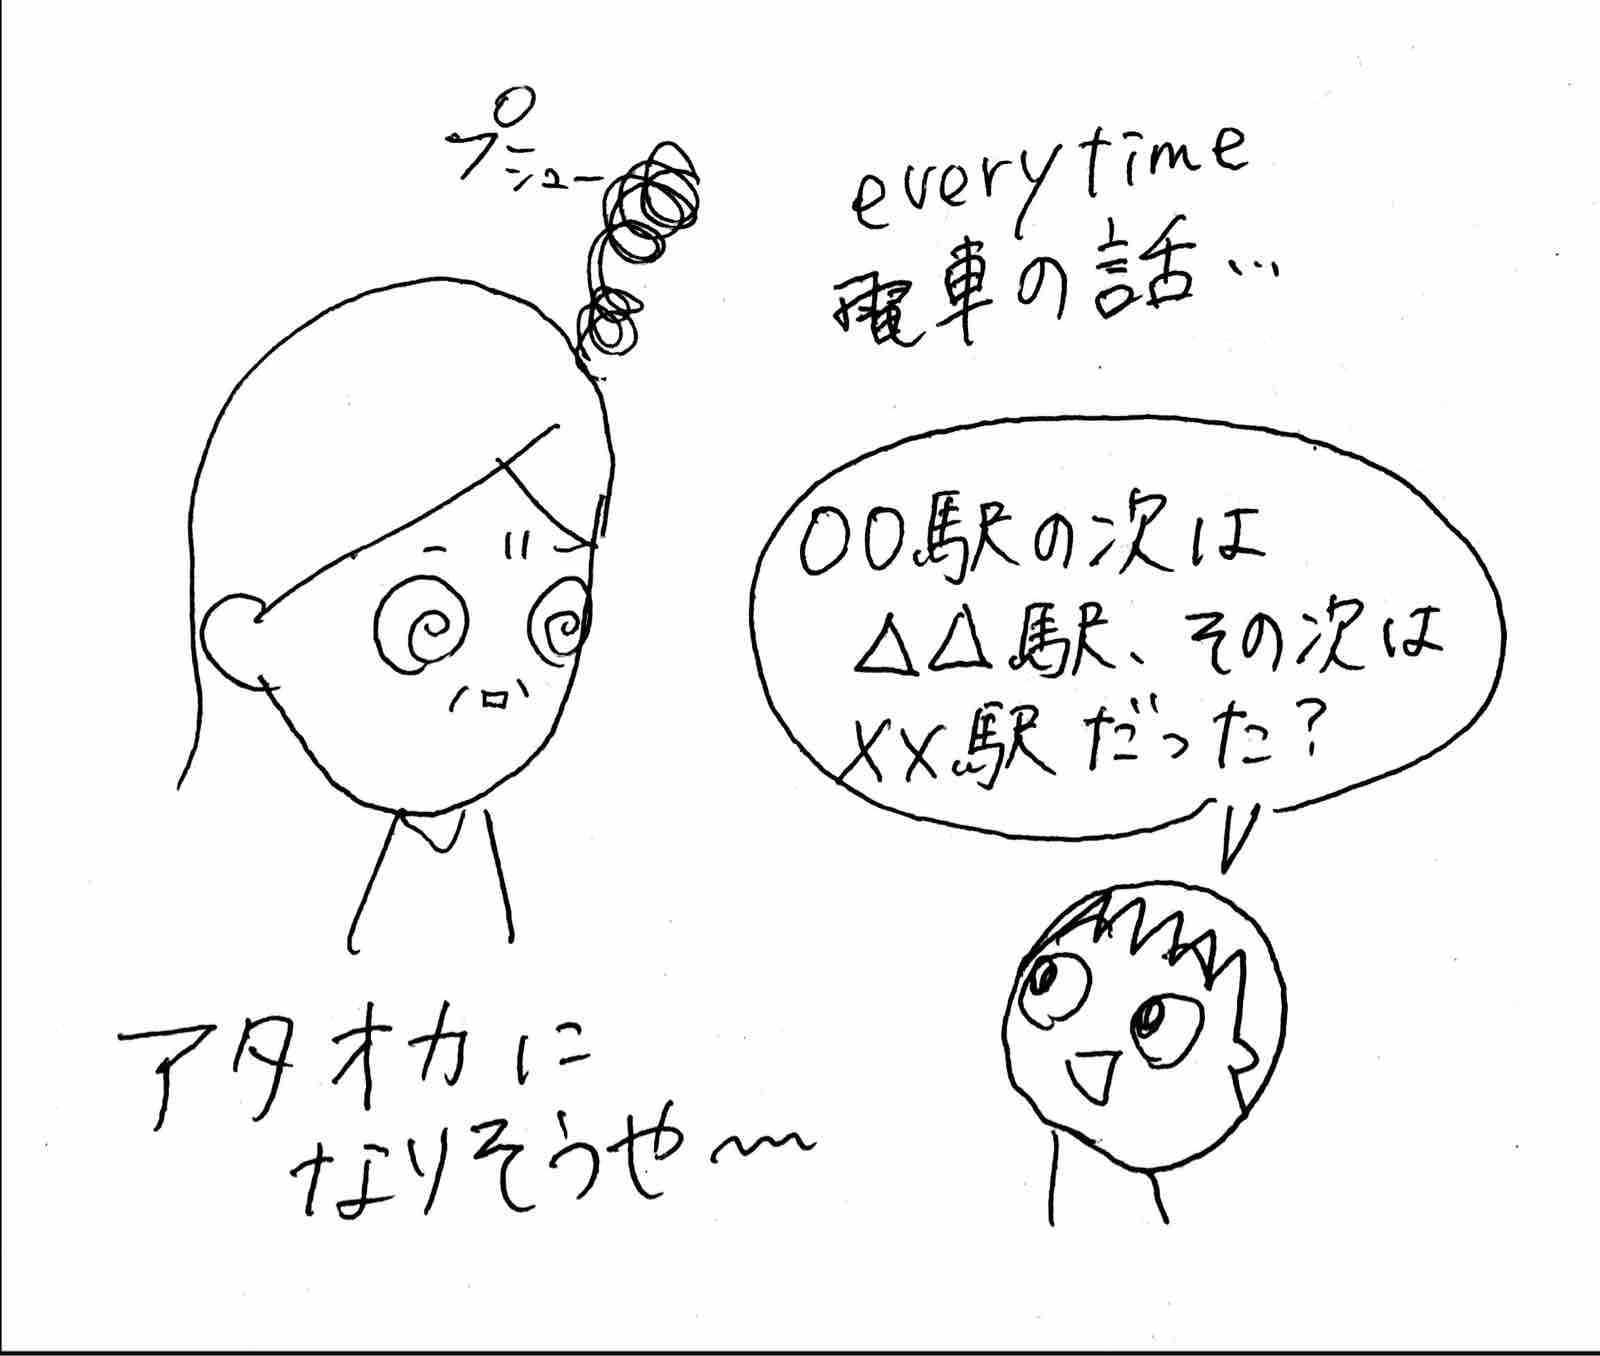 プシュー
everytime
電車の話…
〇〇駅の次は
△△駅、その次は
××駅だった?
アタオカに
なりそうや〜